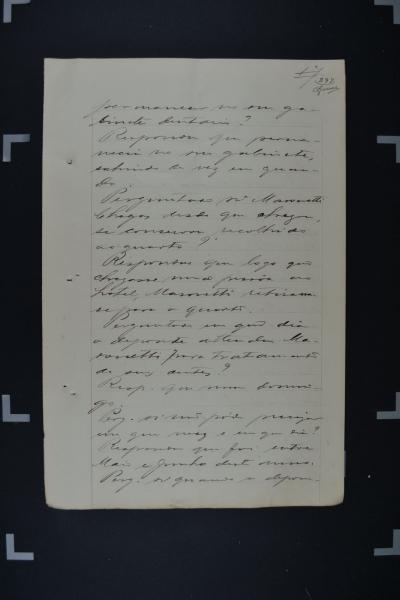 permaneceu no seu ga-
binete dentario?
Respondeu que perma-
necia no seu gabinete,
sahindo de vez em quan-
do.
Perguntado si Maronetti
chegou desde que chegou,
se conservou recolhido
ao quarto?
Respondeu que logo que
chegasse uma pessoa ao
hotel, Maronetti retirava-
se para o quarto.
Perguntou em que dia
o depoente attendeu Ma-
ronetti para tratamento
de seus dentes?
Resp. que num domin-
go.
Perg. si não pode precisar
em que mez e em que dia?
Respondeu que foi entre
Maio e Junho deste anno.
Perg. si quando o depoen-